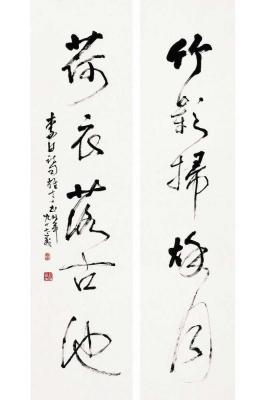 竹影掃秋月
荷衣落古池
李白詩句